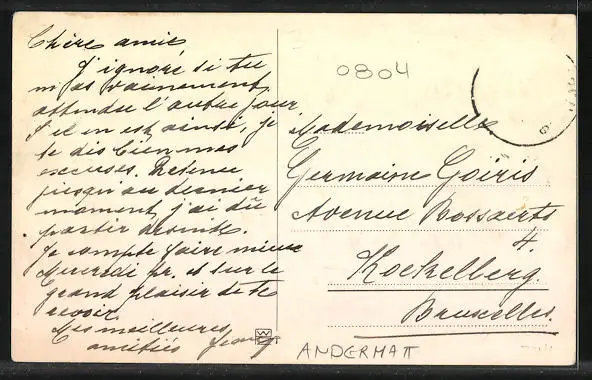 Chère amie,
J'ignore si tu
m'as vainement
attendue l'autre jour
S'il en est ainsi, je
te dis bien mes
excuses. Retenue
jusqu'au dernier
moment, j'ai dû
partir
Je compte faire mieux
Mercredi pr. et sur le
grand plaisir de te
revoir.
Mes meilleures
amitiés
0804
Mademoiselle
Germaine Goiris
Avenue Bossaerts
4.
Koekelberg.
Bruxelles.
ANDERMATT